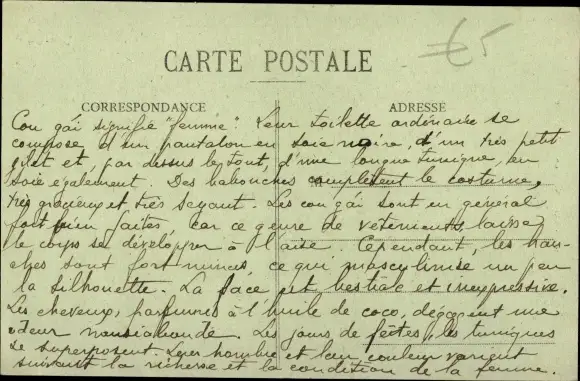 €5
CARTE POSTALE
CORRESPONDANCE
ADRESSE
Con gái signifie "femme". Leur toilette ordinaire se
compose d'un pantalon en soie noire, d'un très petit
gilet et, par dessus le tout, d'une longue tunique, en
soie également. Des babouches complètent le costume,
très gracieux et très seyant. Les con gái sont en général
fort bien faites, car ce genre de vêtements laisse
le corps se développer à l'aise. Cependant, les han-
ches sont fort minces, ce qui masculinise un peu
la silhouette. La face est bestiale et inexpressive.
Les cheveux, parfumés à l'huile de coco, dégagent une
odeur nauséabonde. Les jours de fêtes, les tuniques
se superposent. Leur nombre et leur couleur varient
suivant la richesse et la condition de la femme.